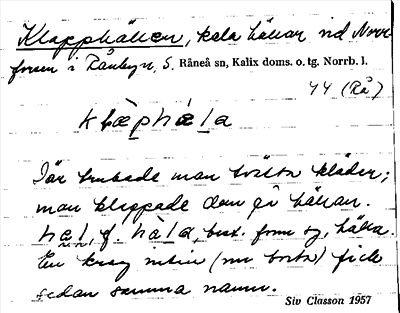 Klapphällen, kala hällar vid Norr-
forsen i Rånbyn, S. Råneå sn, Kalix doms. o. tg. Norrb. l.
44 (Rå)
klæphæla
Där brukade man tvätta kläder;
man klappade dem på hällan.
hæl, f. hæla, best. form sg, hälla.
En krog intill (nu borta) fick
sedan samma namn.
Siv Classon 1957